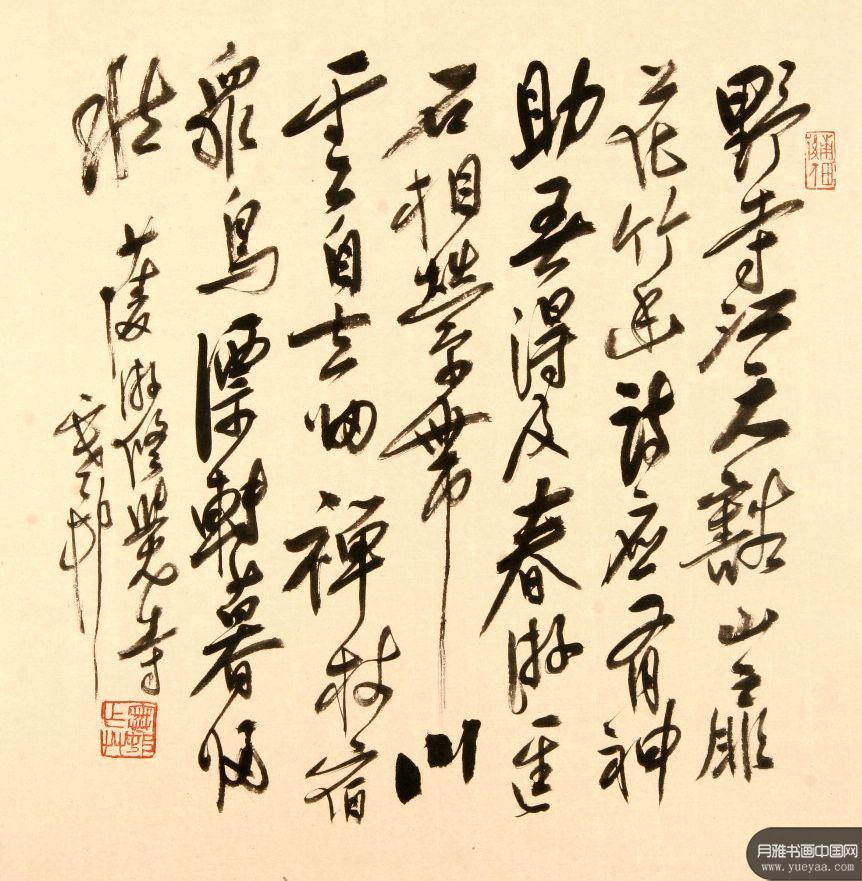 野寺江天豁山扉
花竹幽詩应有神
助吾得及春游迳
石相縈帶川
雲自去留禪枝宿
眾鳥漂轉暮歸
愁
少陵游修覺寺
月雅书画中国网
www.yueyaa.com